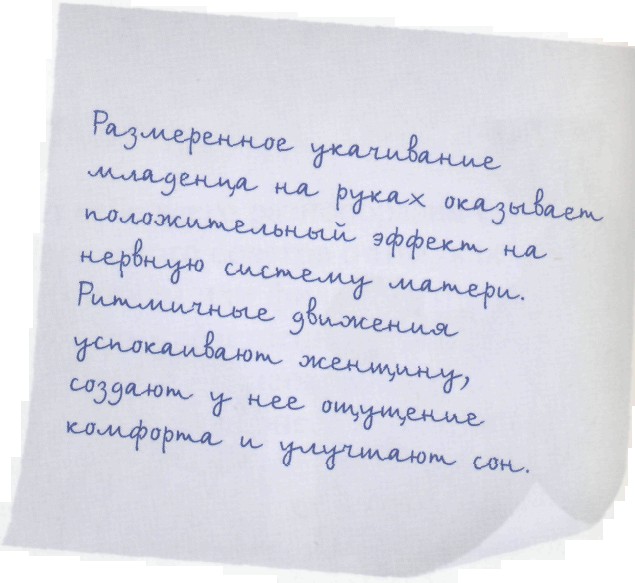 Размеренное укачивание
младенца на руках оказывает
положительный эффект на
нервную систему матери.
Ритмичные движения
успокаивают женщину,
создают у нее ощущение
комфорта и улучшают сон.